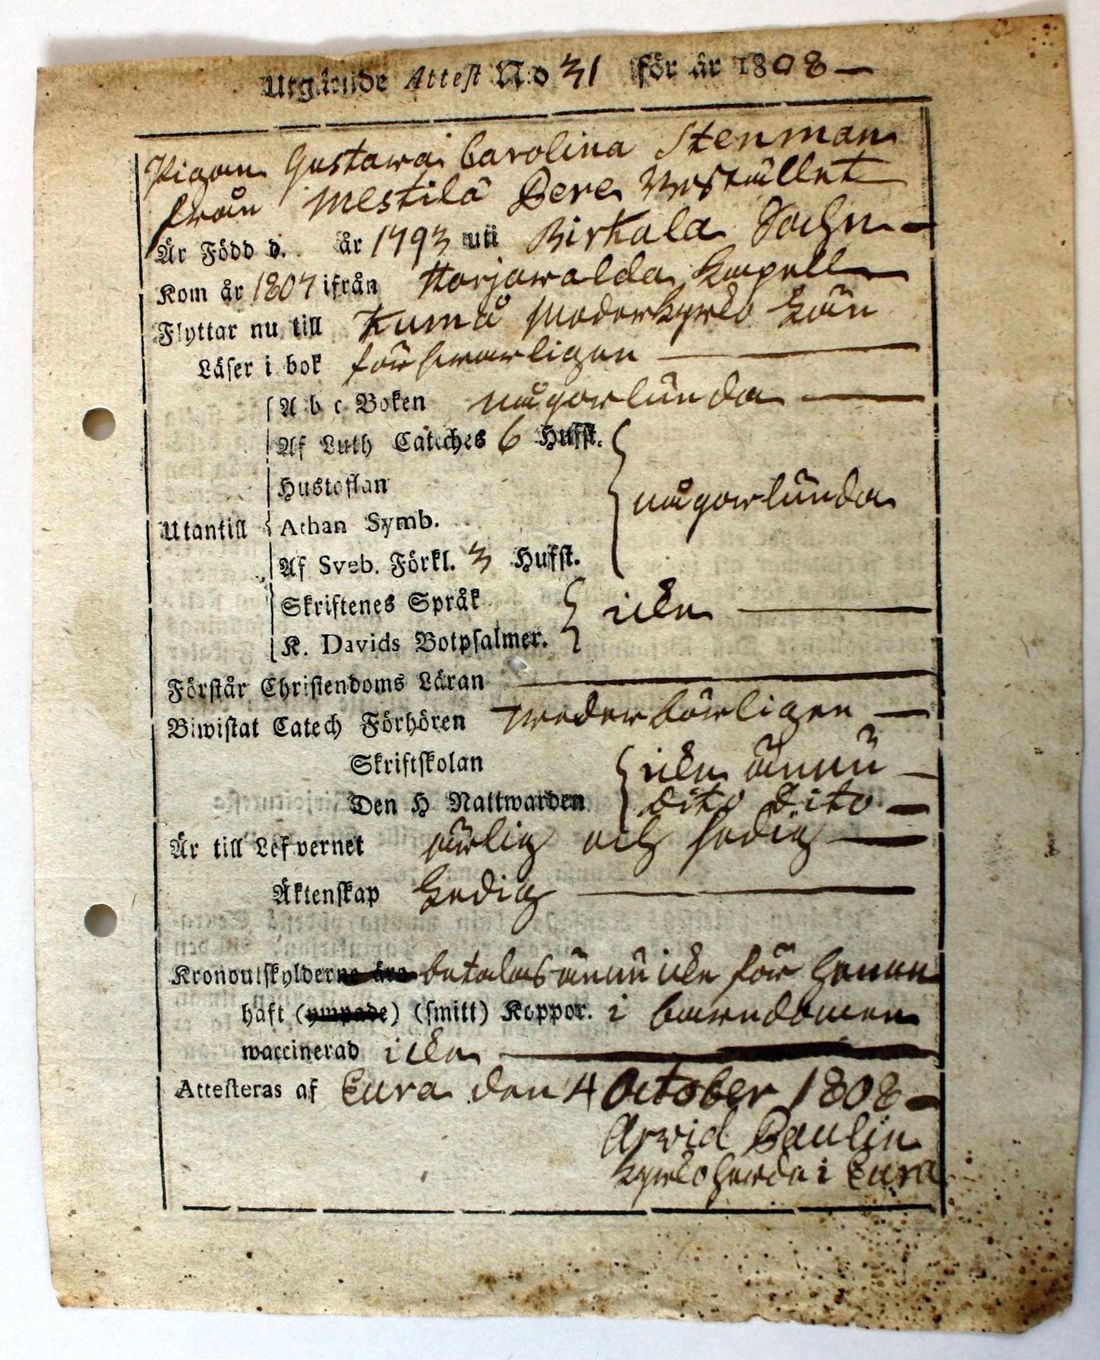 Utgående Attest N:o 31 för år 1808 —
Pigan Gustava Carolina Stenman
från Mestilä Bere Vrstället
Är Född d. år 1793 uti Birkala Sochn —
Kom år 1807 ifrån Harjawalda Kapell
Flyttar nu till Kumå Moderkyrko
Läser i bok försvarligen —
A b c Boken någorlunda —
Af Luth Cateches 6 Hufst.
Hustaflan
någorlunda
Utantill Athan Symb.
Af Sveb. Förkl. 3 Hufst.
Skriftenes Språk
icke —
K. Davids Botpsalmer.
Förstår Christendoms Läran —
Biwistat Catech Förhören wederbörligen —
Skriftskolan icke ännu —
Den H. Nattwarden dito dito —
Är till Lefvernet ärlig och sedig —
Äktenskap Ledig —
Kronoutskylderne äro betalas ännu icke för henne
haft (ympade) (smitt) Koppor. i barndomen
waccinerad icke —
Attesteras af Eura den 4 October 1808 —
Arvid Paulin
Kyrkoherde i Eura